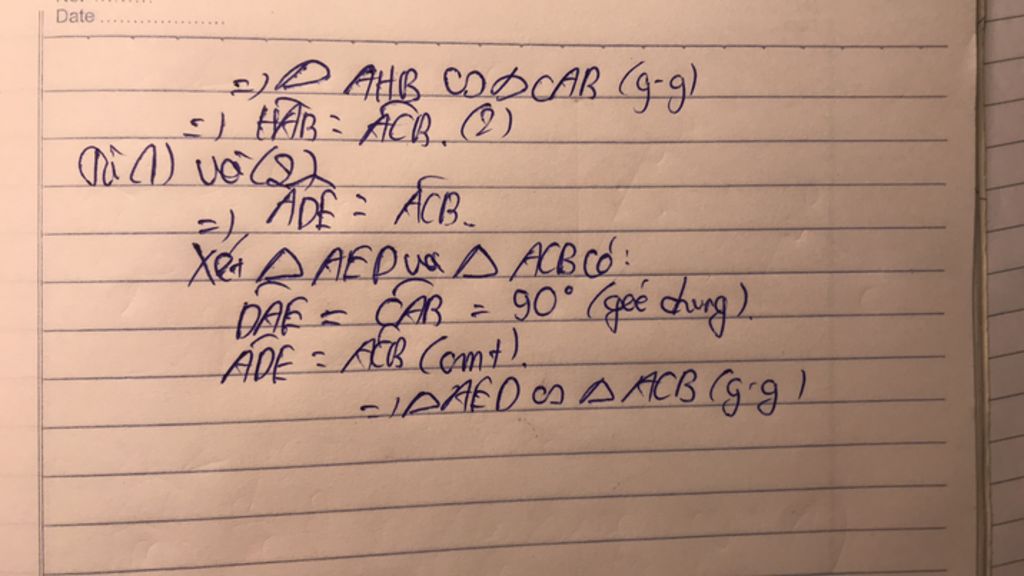 Date ...................
=) △ AHB ∽ △ CAB (g-g)
=) HAB = ACB. (2)
Từ (1) và (2)
=) ADE = ACB.
Xét △ AED và △ ACB có:
DAE = CAB = 90° (góc chung).
ADE = ACB (cmt).
=) △ AED ∽ △ ACB (g-g)